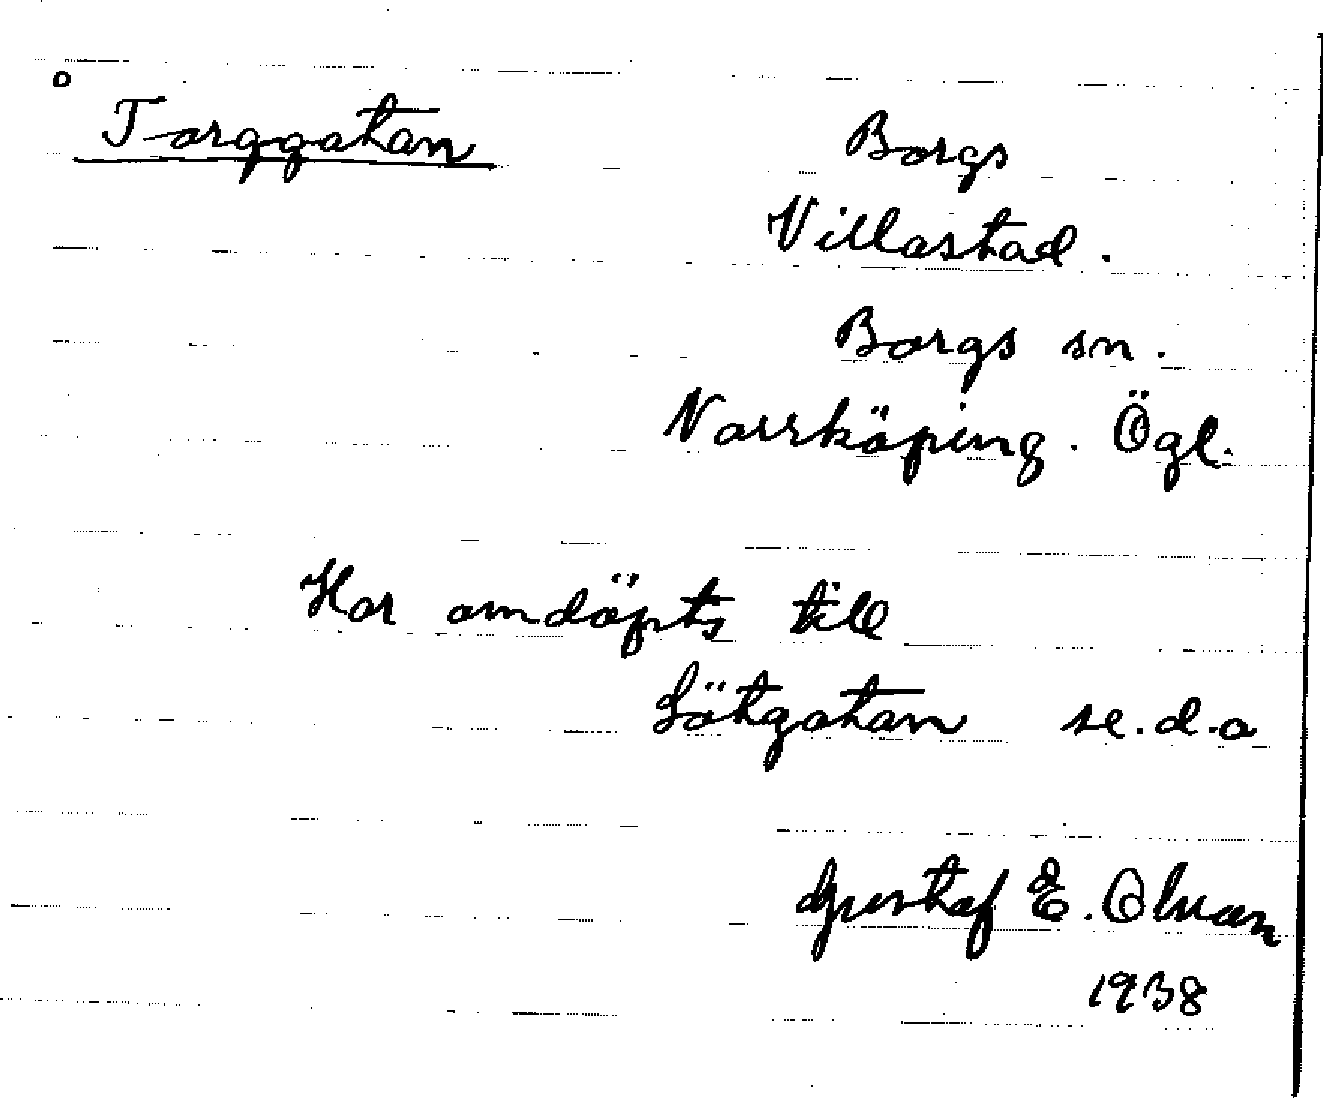 Torggatan
Borgs
Villastad.
Borgs sn.
Norrköping. Ögl.
Har omdöpts till
Lötgatan se.d.o
Gustaf E.
1938